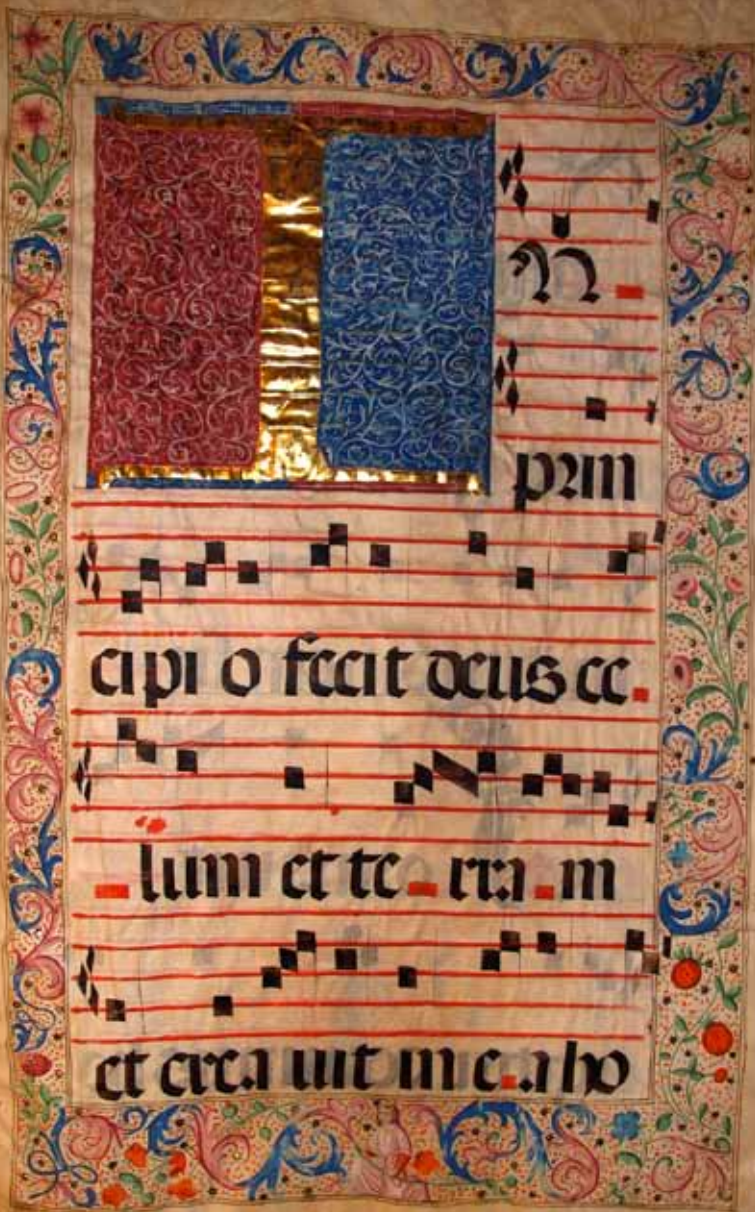 IN
prin
cipi o fecit deus ce
lum et te rra m
et crea uit in e a ho